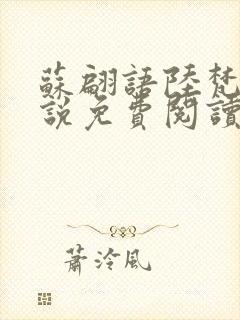 蘇翩語陸梵
說免費閱讀
蕭泠風